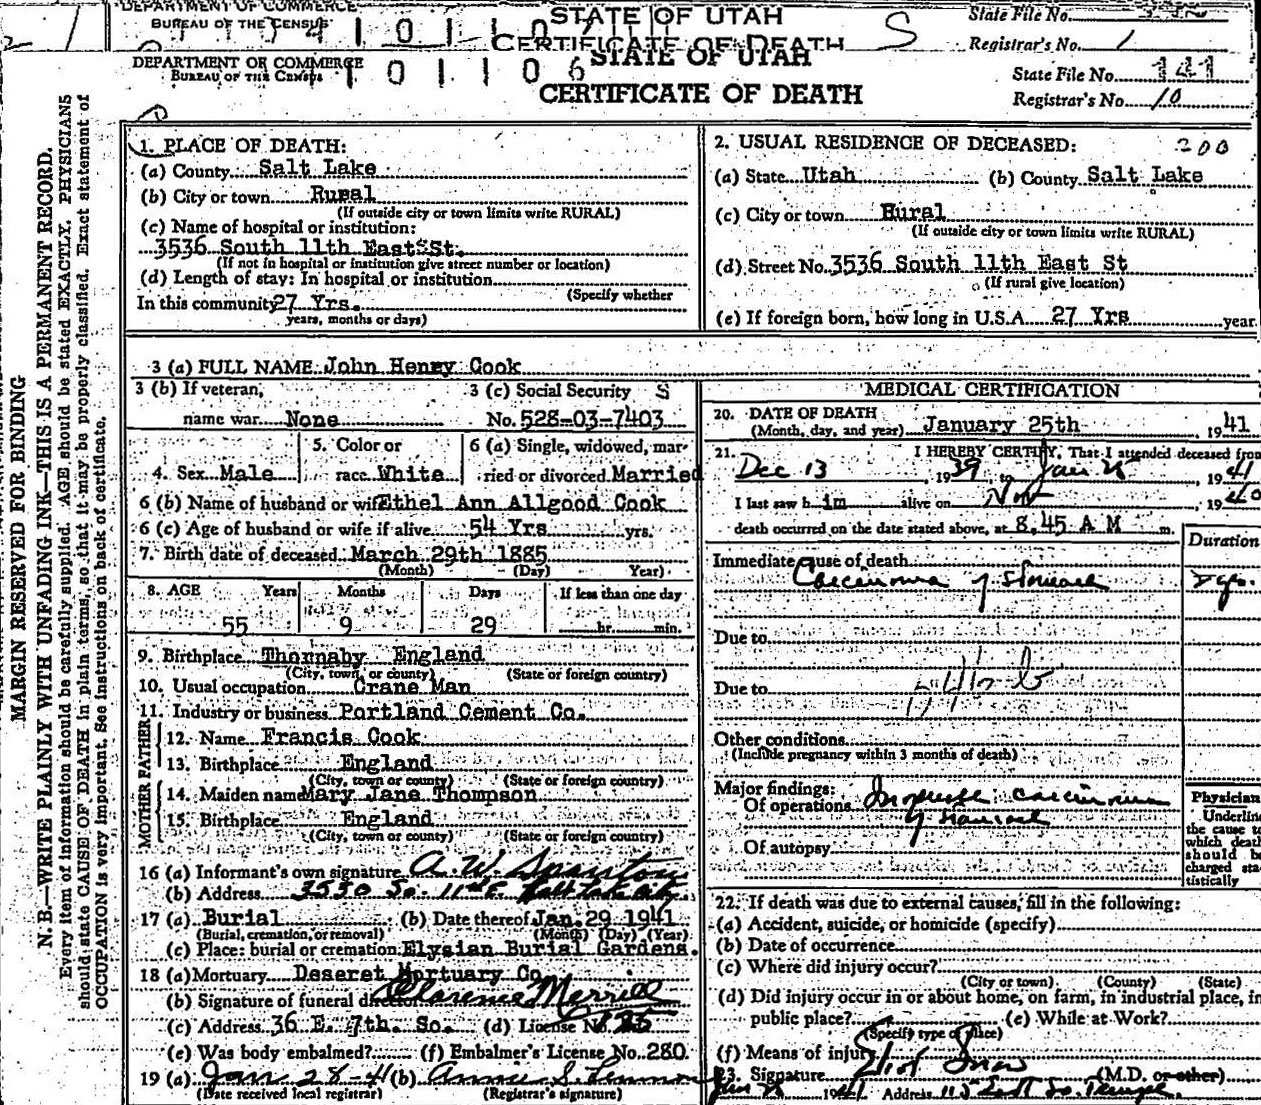 DEPARTMENT OF COMMERCE
BUREAU OF THE CENSUS
STATE OF UTAH
CERTIFICATE OF DEATH
S
State File No.
Registrar's No. 1
DEPARTMENT OF COMMERCE
BUREAU OF THE CENSUS
1 0 1 1 0 6
STATE OF UTAH
CERTIFICATE OF DEATH
State File No. 141
Registrar's No. 10
MARGIN RESERVED FOR BINDING
N. B.—WRITE PLAINLY WITH UNFADING INK—THIS IS A PERMANENT RECORD.
Every item of information should be carefully supplied. AGE should be stated EXACTLY. PHYSICIANS
should state CAUSE OF DEATH in plain terms, so that it may be properly classified. Exact statement of
OCCUPATION is very important. See instructions on back of certificate.
1. PLACE OF DEATH:
(a) County Salt Lake
(b) City or town Rural
(If outside city or town limits write RURAL)
(c) Name of hospital or institution:
3536 South 11th East St.
(If not in hospital or institution give street number or location)
(d) Length of stay: In hospital or institution
(Specify whether
In this community 27 Yrs.
years, months or days)
2. USUAL RESIDENCE OF DECEASED: 200
(a) State Utah (b) County Salt Lake
(c) City or town Rural
(If outside city or town limits write RURAL)
(d) Street No. 3536 South 11th East St
(If rural give location)
(e) If foreign born, how long in U.S.A. 27 Yrs year
3 (a) FULL NAME: John Henry Cook
3 (b) If veteran,
name war None
3 (c) Social Security S
No. 528-03-7403
4. Sex Male
5. Color or
race White
6 (a) Single, widowed, mar-
ried or divorced Married
6 (b) Name of husband or wife Ethel Ann Allgood Cook
6 (c) Age of husband or wife if alive 54 Yrs yrs.
7. Birth date of deceased March 29th 1885
(Month) (Day) Year)
8. AGE Years Months Days If less than one day
55 9 29 hr. min.
9. Birthplace Thornaby England
(City, town, or county) (State or foreign country)
10. Usual occupation Crane Man
11. Industry or business Portland Cement Co.
FATHER
12. Name Francis Cook
13. Birthplace England
(City, town or county) (State or foreign country)
MOTHER
14. Maiden name Mary Jane Thompson
15. Birthplace England
(City, town or county) (State or foreign country)
16 (a) Informant's own signature A. W.
(b) Address 3530 So. 11th E. Salt Lake City
17 (a) Burial (b) Date thereof Jan. 29 1941
(Burial, cremation, or removal) (Month) (Day) (Year)
(c) Place: burial or cremation Elysian Burial Gardens.
18 (a) Mortuary Deseret Mortuary Co
(b) Signature of funeral director Clarence Merrill
(c) Address 36 E. 7th. So. (d) License No.
(e) Was body embalmed? (f) Embalmer's License No. 280
19 (a) Jan 28-41 (b) Annie S.
(Date received local registrar) (Registrar's signature)
MEDICAL CERTIFICATION
20. DATE OF DEATH
(Month, day, and year) January 25th, 1941
21. I HEREBY CERTIFY, That I attended deceased from
Dec 13, 1939, to Jan 25, 1941
I last saw h im alive on Nov, 1940
death occurred on the date stated above, at 8.45 A M m.
Duration
Immediate cause of death
Carcinoma of stomach
Due to
Due to
Other conditions
(Include pregnancy within 3 months of death)
Major findings:
Of operations Inoperable carcinoma
of stomach
Of autopsy
Physician
Underline
the cause to
which death
should be
charged sta-
tistically
22. If death was due to external causes, fill in the following:
(a) Accident, suicide, or homicide (specify)
(b) Date of occurrence
(c) Where did injury occur?
(City or town) (County) (State)
(d) Did injury occur in or about home, on farm, in industrial place, in
public place? (e) While at Work?
(Specify type of place)
(f) Means of injury
23. Signature Eliot Snow (M.D. or other)
1941 Address 115 East So. Temple